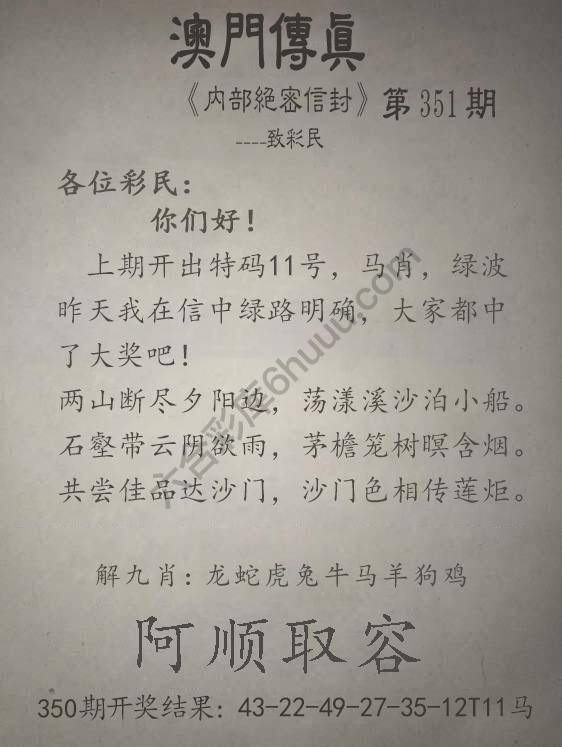 澳門傳眞
《内部絕密信封》第351期
----致彩民
各位彩民：
你们好！
上期开出特码11号，马肖，绿波
昨天我在信中绿路明确，大家都中
了大奖吧！
两山断尽夕阳边，荡漾溪沙泊小船。
石壑带云阴欲雨，茅檐笼树暝含烟。
共尝佳品达沙门，沙门色相传莲炬。
解九肖：龙蛇虎兔牛马羊狗鸡
阿顺取容
350期开奖结果：43-22-49-27-35-12T11马
六合彩库6huuu.com